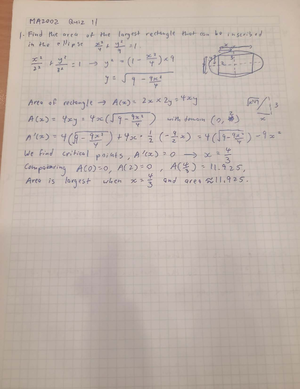 MA2002 Quiz 11
1. Find the area of the largest rectangle that can be inscribed
in the ellipse x²/4 + y²/9 = 1.
x²/2² + y²/3² = 1 → y² = (1 - x²/4) × 9
y = √(9 - 9x²/4)
Area of rectangle → A(x) = 2x × 2y = 4xy
A(x) = 4xy = 4x(√(9 - 9x²/4)) with domain (0,
A'(x) = 4(√(9 - 9x²/4)) + 4x · 1/2 (-9/2 x) = 4(√(9 - 9x²/4)) - 9x²
We find critical points, A'(x) = 0 → x = 4/3
Comparing A(0) = 0, A(2) = 0, A(4/3) = 11.925,
Area is largest when x = 4/3 and area ≈ 11.925.